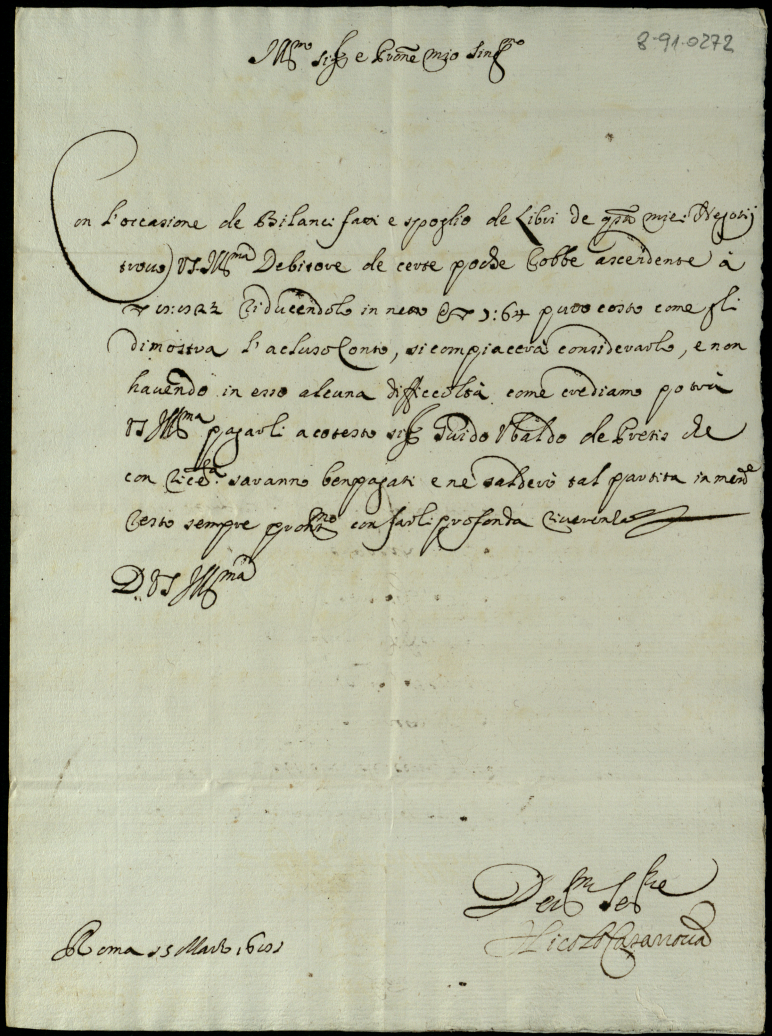 8-91-0272
Ill.mo sig.r e Prone mio sing.mo
Con l'occasione de Bilanci fatti e spoglio de Libri de q.sti miei Negotij
trovo VS. Ill.ma Debitore de certe poche Robbe ascendente à
Riducendolo in netto 1:64 puro costo come gli
dimostra l'acluso Conto, si compiacerà considerarlo, e non
havendo in esso alcuna difficcoltà come crediamo potrà
VS Ill.ma pagarli a cotesto sig.r Guido Vbaldo de Pretis che
con Ric.ta saranno benpagati e ne salderò tal partita in mentre
Resto sempre pront.mo con farli profonda Riverenza
D. VS Ill.ma
Dev.mo Ser.re
Nicolò Casanova
Roma 15 Marzo